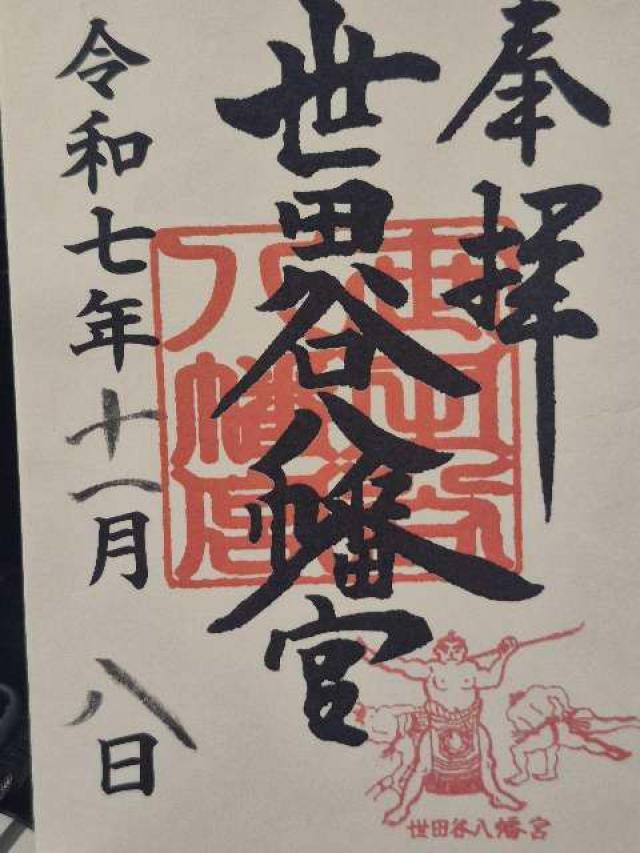 奉拝
世田谷八幡宮
世田谷
八幡宮
令和七年十一月八日
世田谷八幡宮